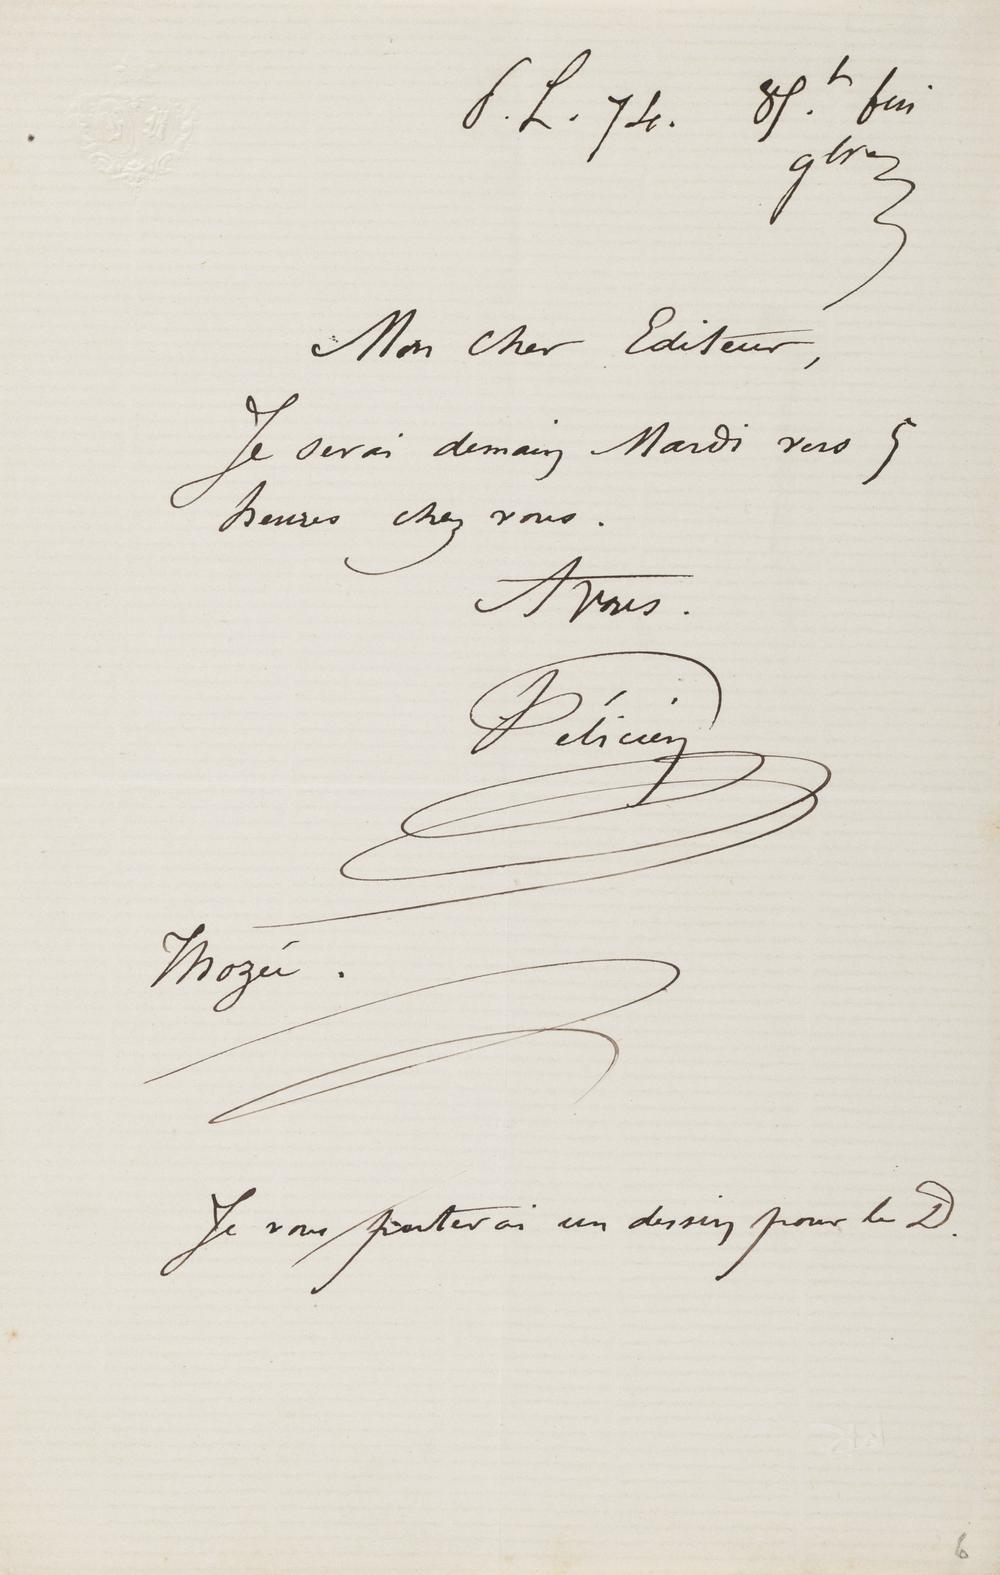 P. L. 74.
9bre
Mon cher Editeur,
Je serai demain Mardi vers 5
heures chez vous.
A vous.
Félicien
Thozée.
Je vous porterai un dessin pour le D.
6